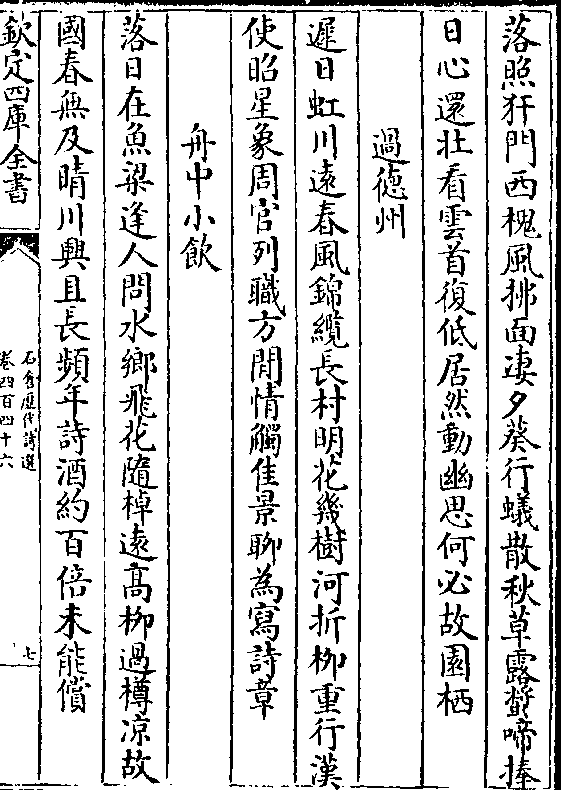 落照犴門西槐風拂面凄夕葵行蟻散秋草露螿啼捧
日心還壯看雲首復低居然動幽思何必故園栖
過德州
遲日虹川遠春風錦纜長村明花幾樹河折柳重行漢
使昭星象周官列職方閒情觸佳景聊為寫詩章
舟中小飲
落日在魚梁逢人問水鄉飛花隨棹遠髙柳過樽凉故
國春無及晴川興且長頻年詩酒約百倍未能償
欽定四庫全書
石倉歷代詩選
卷四百四十六
七